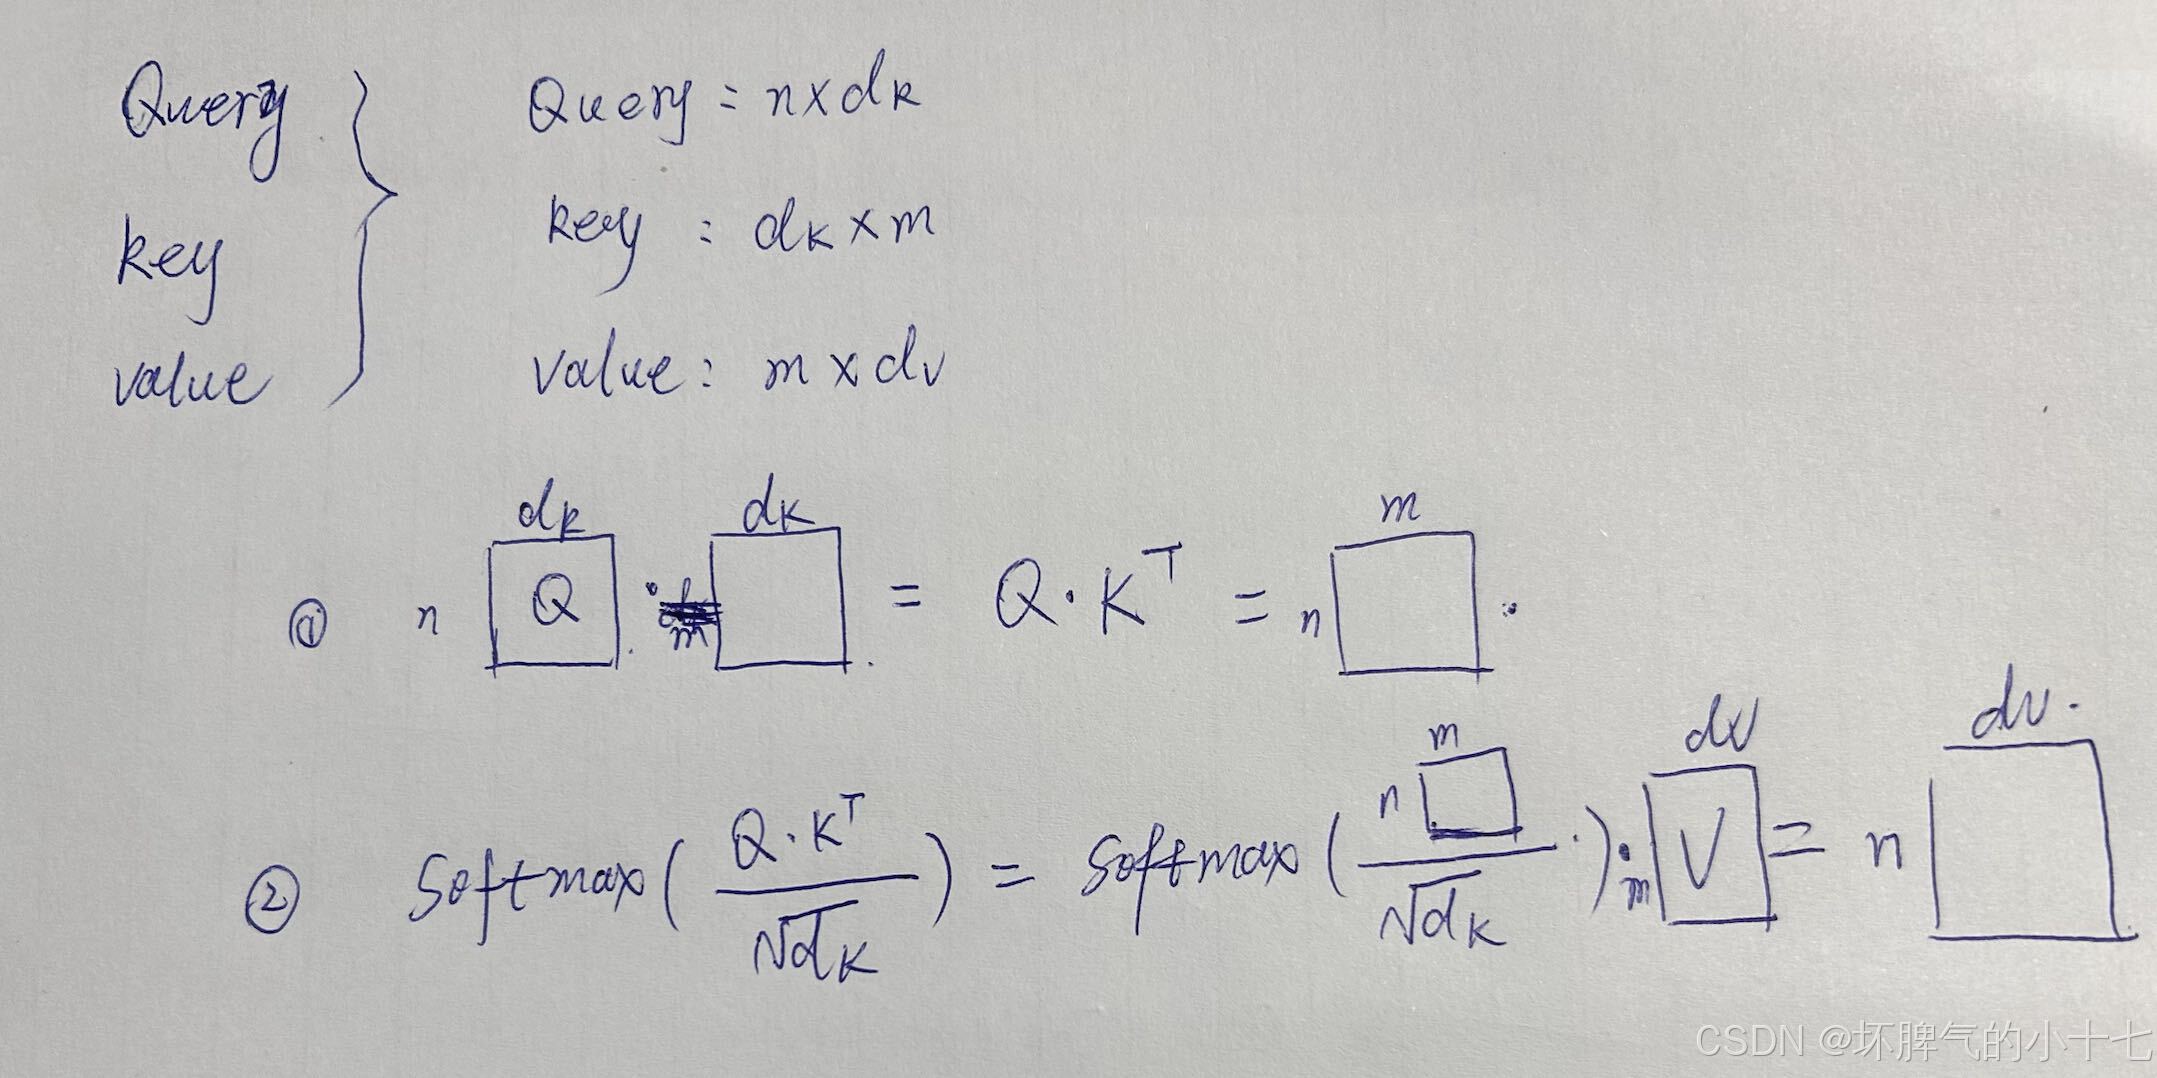 Query
key
value
Query = n×dk
key : dk×m
value: m×dv
① n dk Q · m dk = Q·K^T = n m ·
② softmax( Q·K^T / √dk ) = softmax( n m / √dk ) · m dv V = n dv.
CSDN @坏脾气的小十七